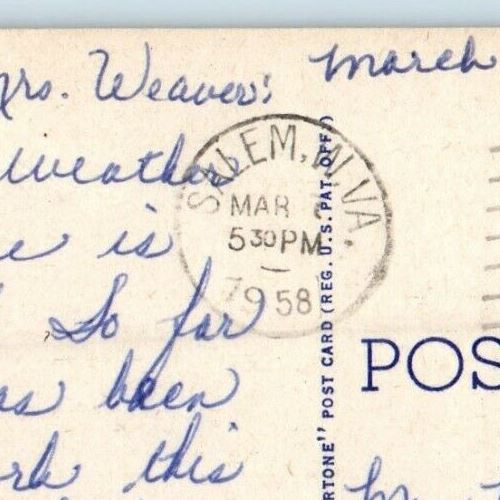 Mrs. Weaver: March
Weather
is
So far
been
this
SALEM, W. VA.
MAR
5 30 PM
1958
POST CARD (REG. U.S. PAT. OFF.)
POS